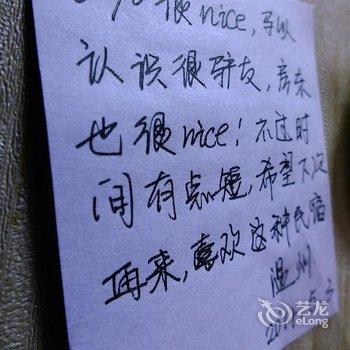 很nice，可以
认识很多驴友，房东
也很nice！不过时
间有点短，希望下次
再来，喜欢这种民宿
温州
艺龙
eLong